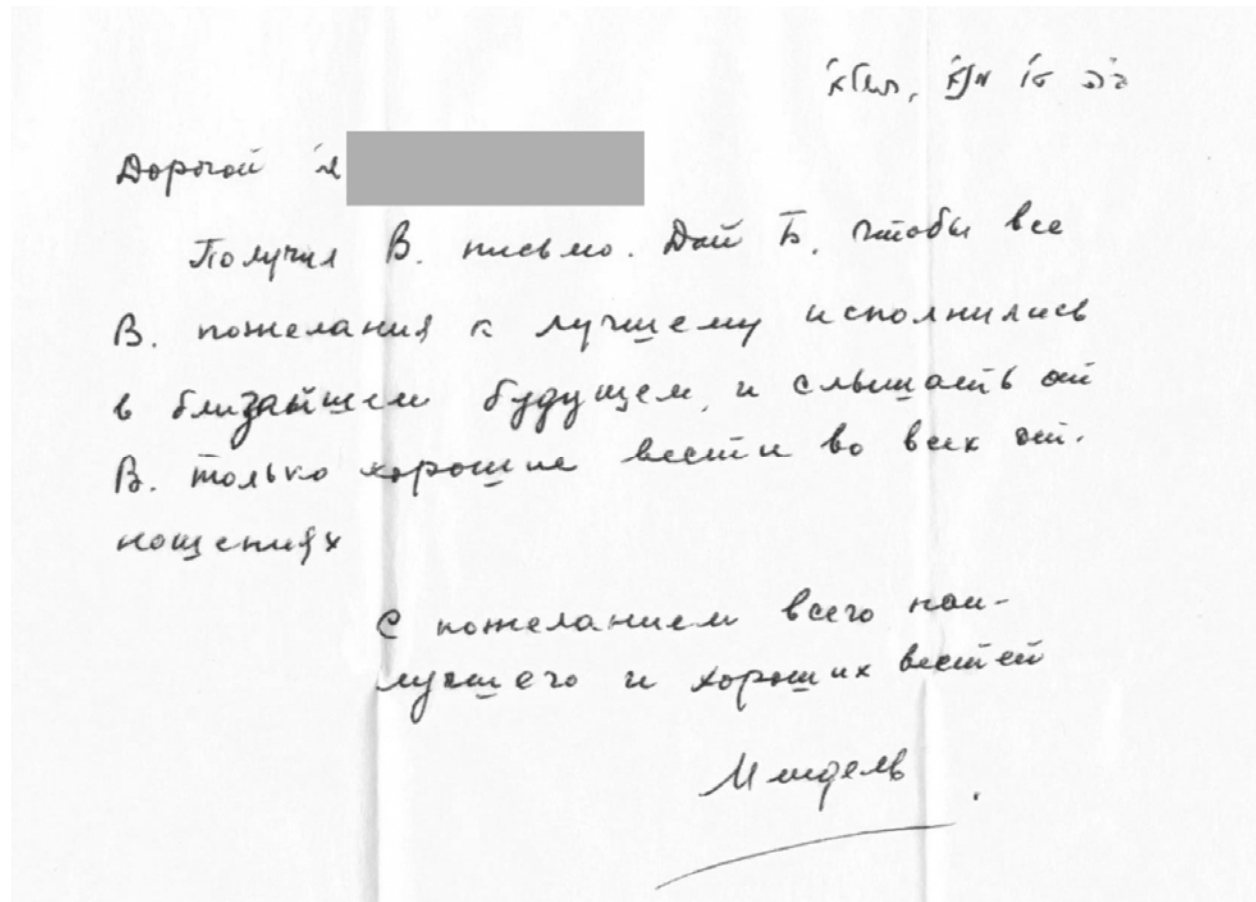 Дорогой
Получил В. письмо. Дай Б. чтобы все
В. пожелания к лучшему исполнились
в ближайшем будущем, и слышать от
В. только хорошие вести во всех от-
ношениях
С пожеланием всего наи-
лучшего и хороших вестей